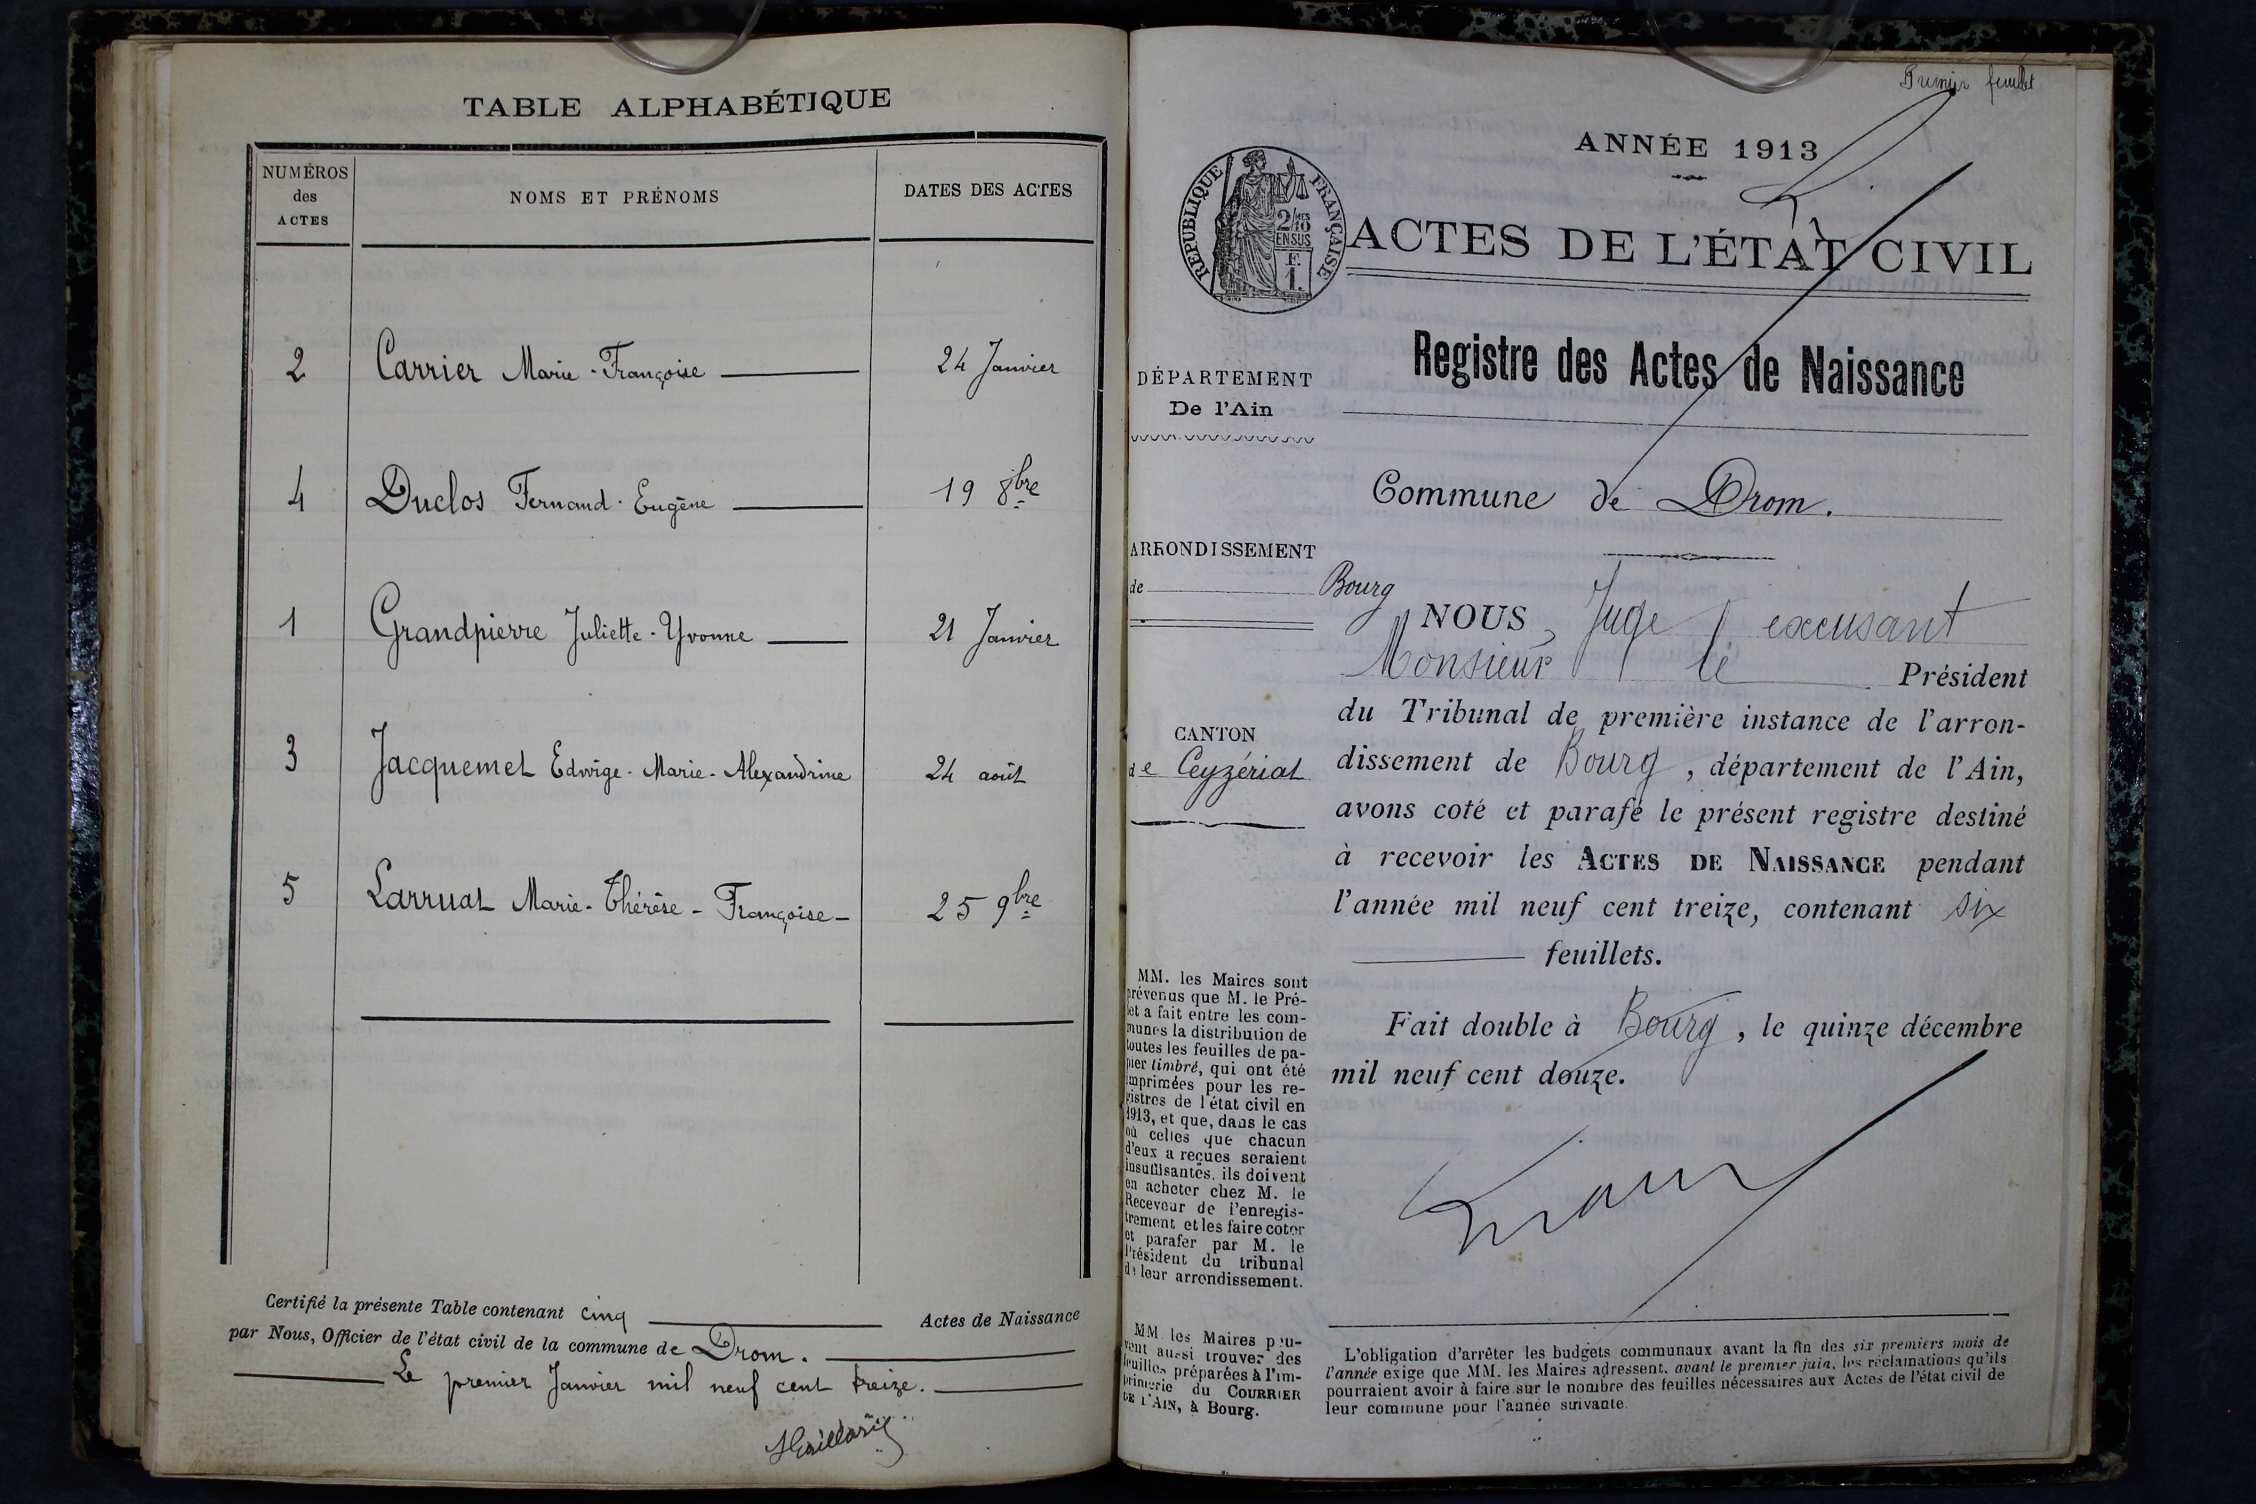 TABLE ALPHABÉTIQUE
NUMÉROS
des
ACTES
NOMS ET PRÉNOMS
DATES DES ACTES
2 Carrier Marie-Françoise 24 Janvier
4 Duclos Fernand-Eugène 19 8bre
1 Grandpierre Juliette-Yvonne 21 Janvier
3 Jacquemet Edwige-Marie-Alexandrine 24 août
5 Larruat Marie-Thérèse-Françoise 25 9bre
Certifié la présente Table contenant cinq Actes de Naissance
par Nous, Officier de l'état civil de la commune de Drom.
Le premier Janvier mil neuf cent treize.
Premier feuillet
ANNÉE 1913
RÉPUBLIQUE FRANÇAISE
2/10MES
EN SUS
F.
1.
ACTES DE L'ÉTAT CIVIL
Registre des Actes de Naissance
DÉPARTEMENT
De l'Ain
Commune de Drom.
ARRONDISSEMENT
de Bourg
CANTON
de Ceyzériat
NOUS, Juge excusant
Monsieur le Président
du Tribunal de première instance de l'arron-
dissement de Bourg, département de l'Ain,
avons coté et parafé le présent registre destiné
à recevoir les ACTES DE NAISSANCE pendant
l'année mil neuf cent treize, contenant six
feuillets.
Fait double à Bourg, le quinze décembre
mil neuf cent douze.
MM. les Maires sont
prévenus que M. le Pré-
fet a fait entre les com-
munes la distribution de
toutes les feuilles de pa-
pier timbré, qui ont été
imprimées pour les re-
gistres de l'état civil en
1913, et que, dans le cas
où celles que chacun
d'eux a reçues seraient
insuffisantes, ils doivent
en acheter chez M. le
Receveur de l'enregis-
trement et les faire coter
et parafer par M. le
Président du tribunal
de leur arrondissement.
MM. les Maires peu-
vent aussi trouver des
feuilles préparées à l'im-
primerie du COURRIER
DE L'AIN, à Bourg.
L'obligation d'arrêter les budgets communaux avant la fin des six premiers mois de
l'année exige que MM. les Maires adressent, avant le premier juin, les réclamations qu'ils
pourraient avoir à faire sur le nombre des feuilles nécessaires aux Actes de l'état civil de
leur commune pour l'année suivante.